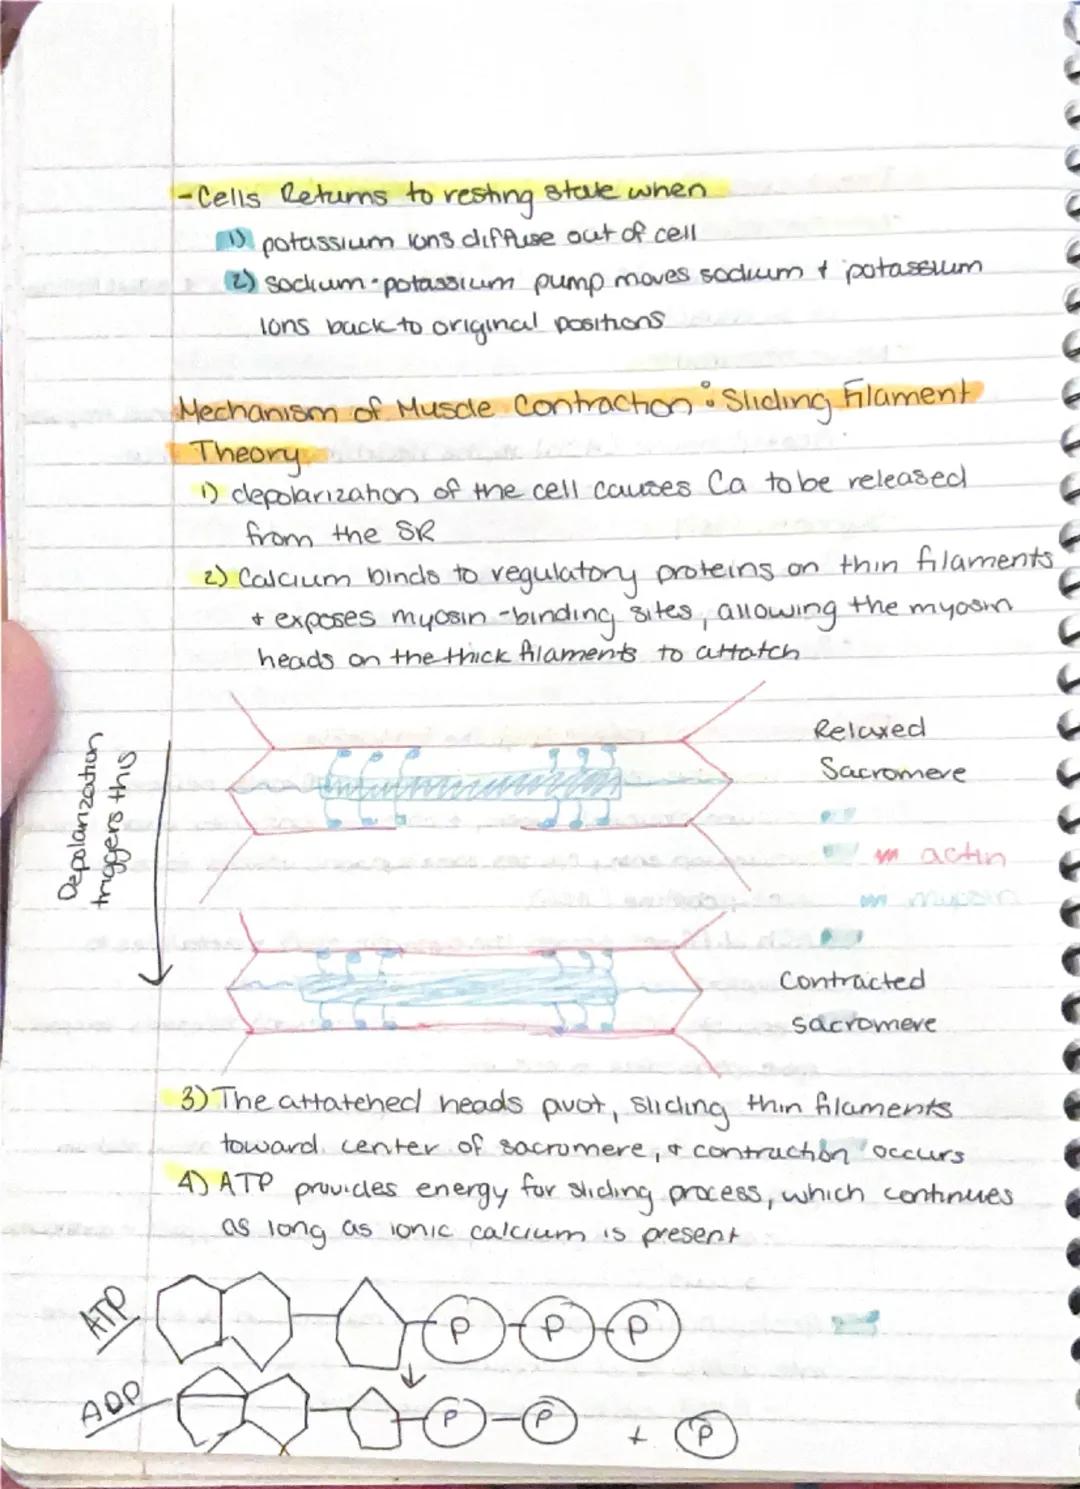 -Cells Returns to resting state when
1) potassium ions diffuse out of cell
2) sodium-potassium pump moves sodium + potassium
ions back to original positions
Mechanism of Muscle Contraction: Sliding Filament
Theory
1) depolarization of the cell causes Ca to be released
from the SR
2) Calcium binds to regulatory proteins on thin filaments
+ exposes myosin-binding sites, allowing the myosin
heads on the thick filaments to attatch
Depolarization
triggers this
Relaxed
Sacromere
actin
myosin
Contracted
sacromere
3) The attatched heads pivot, sliding thin filaments
toward center of sacromere, + contraction occurs
4) ATP provides energy for sliding process, which continues
as long as ionic calcium is present
ATP
P P P
ADP
P P + P